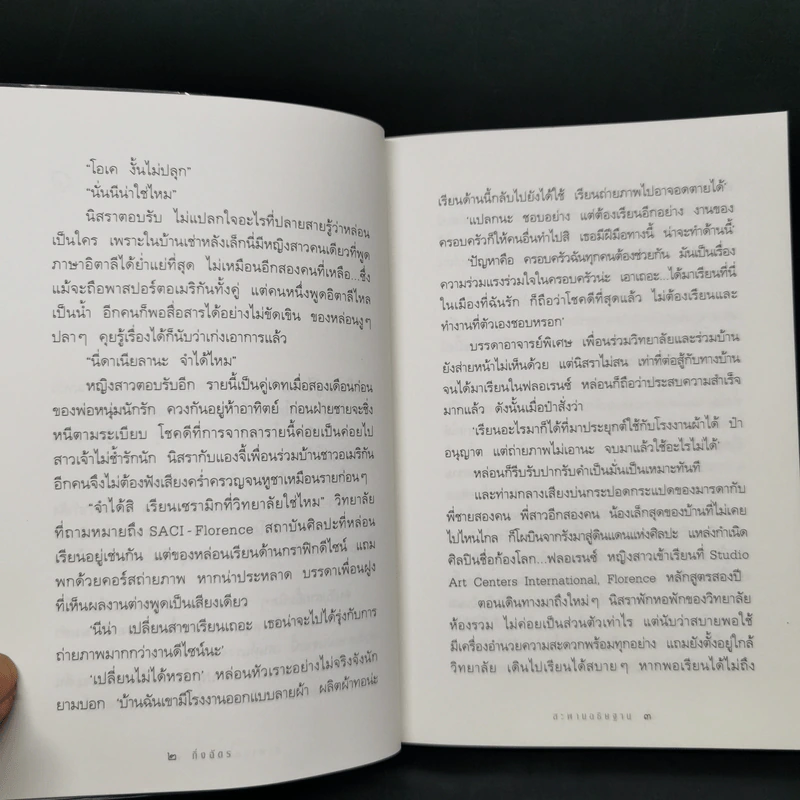 "โอเค งั้นไม่ปลุก"
"นั่นนีน่าใช่ไหม"
นิสราตอบรับ ไม่แปลกใจอะไรที่ปลายสายรู้ว่าหล่อน
เป็นใคร เพราะในบ้านเช่าหลังเล็กนี่มีหญิงสาวคนเดียวที่พูด
ภาษาอิตาลีได้ย่ำแย่ที่สุด ไม่เหมือนอีกสองคนที่เหลือ...ซึ่ง
แม้จะถือพาสปอร์ตอเมริกันทั้งคู่ แต่คนหนึ่งพูดอิตาลีไหล
เป็นน้ำ อีกคนก็พอสื่อสารได้อย่างไม่ขัดเขิน ของหล่อนงูๆ
ปลาๆ คุยรู้เรื่องได้ก็นับว่าเก่งเอาการแล้ว
"นี่ดาเนียลานะ จำได้ไหม"
หญิงสาวตอบรับอีก รายนี้เป็นคู่เดทเมื่อสองเดือนก่อน
ของพ่อหนุ่มนักรัก ควงกันอยู่ห้าอาทิตย์ ก่อนฝ่ายชายจะชิ่ง
หนีตามระเบียบ โชคดีที่การจากลารายนี้ค่อยเป็นค่อยไป
สาวเจ้าไม่ช้ำรักนัก นิสรากับแองจี้เพื่อนร่วมบ้านชาวอเมริกัน
อีกคนจึงไม่ต้องฟังเสียงคร่ำครวญจนหูชาเหมือนรายก่อนๆ
"จำได้สิ เรียนเซรามิกที่วิทยาลัยใช่ไหม" วิทยาลัย
ที่ถามหมายถึง SACI - Florence สถาบันศิลปะที่หล่อน
เรียนอยู่เช่นกัน แต่ของหล่อนเรียนด้านกราฟิกดีไซน์ แถม
พกด้วยคอร์สถ่ายภาพ หากน่าประหลาด บรรดาเพื่อนฝูง
ที่เห็นผลงานต่างพูดเป็นเสียงเดียว
'นีน่า เปลี่ยนสาขาเรียนเถอะ เธอน่าจะไปได้รุ่งกับการ
ถ่ายภาพมากกว่างานดีไซน์นะ'
'เปลี่ยนไม่ได้หรอก' หล่อนหัวเราะอย่างไม่จริงจังนัก
ยามบอก 'บ้านฉันเขามีโรงงานออกแบบลายผ้า ผลิตผ้าทอน่ะ
๒ กิ่งฉัตร
เรียนด้านนี้กลับไปยังได้ใช้ เรียนถ่ายภาพไปอาจอดตายได้'
'แปลกนะ ชอบอย่าง แต่ต้องเรียนอีกอย่าง งานของ
ครอบครัวก็ให้คนอื่นทำไปสิ เธอมีฝีมือทางนี้ น่าจะทำด้านนี้'
'ปัญหาคือ ครอบครัวฉันทุกคนต้องช่วยกัน มันเป็นเรื่อง
ความร่วมแรงร่วมใจในครอบครัวน่ะ เอาเถอะ...ได้มาเรียนที่นี่
ในเมืองที่ฉันรัก ก็ถือว่าโชคดีที่สุดแล้ว ไม่ต้องเรียนและ
ทำงานที่ตัวเองชอบหรอก'
บรรดาอาจารย์พิเศษ เพื่อนร่วมวิทยาลัยและร่วมบ้าน
ยังส่ายหน้าไม่เห็นด้วย แต่นิสราไม่สน เท่าที่ต่อสู้กับทางบ้าน
จนได้มาเรียนในฟลอเรนซ์ หล่อนก็ถือว่าประสบความสำเร็จ
มากแล้ว ดังนั้นเมื่อป๋าสั่งว่า
'เรียนอะไรมาก็ได้ที่มาประยุกต์ใช้กับโรงงานผ้าได้ ป๋า
อนุญาต แต่ถ่ายภาพไม่เอานะ จบมาแล้วใช้อะไรไม่ได้'
หล่อนก็รีบรับปากรับคำเป็นมั่นเป็นเหมาะทันที
และท่ามกลางเสียงบ่นกระปอดกระแปดของมารดากับ
พี่ชายสองคน พี่สาวอีกสองคน น้องเล็กสุดของบ้านที่ไม่เคย
ไปไหนไกล ก็โผบินจากรังมาสู่ดินแดนแห่งศิลปะ แหล่งกำเนิด
ศิลปินชื่อก้องโลก...ฟลอเรนซ์ หญิงสาวเข้าเรียนที่ Studio
Art Centers International, Florence หลักสูตรสองปี
ตอนเดินทางมาถึงใหม่ๆ นิสราพักหอพักของวิทยาลัย
ห้องรวม ไม่ค่อยเป็นส่วนตัวเท่าไร แต่นับว่าสบายพอใช้
มีเครื่องอำนวยความสะดวกพร้อมทุกอย่าง แถมยังตั้งอยู่ใกล้
วิทยาลัย เดินไปเรียนได้สบายๆ หากพอเรียนได้ไม่ถึง
สะพานอธิษฐาน ๓